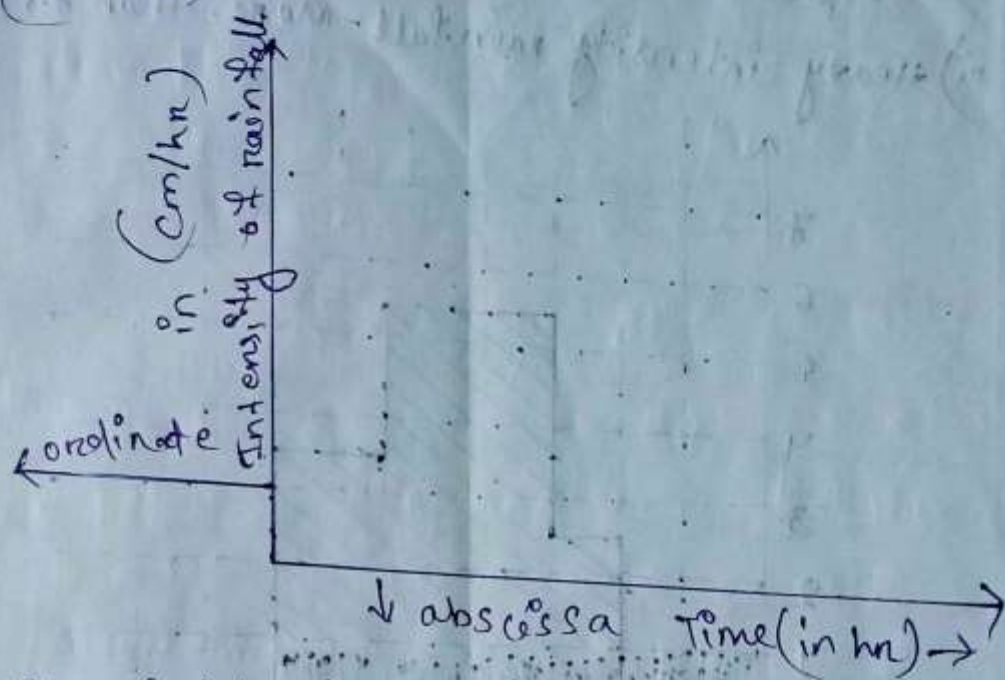 Intensity of rainfall.
in (cm/hr)
ordinate
abscissa
Time (in hr) →